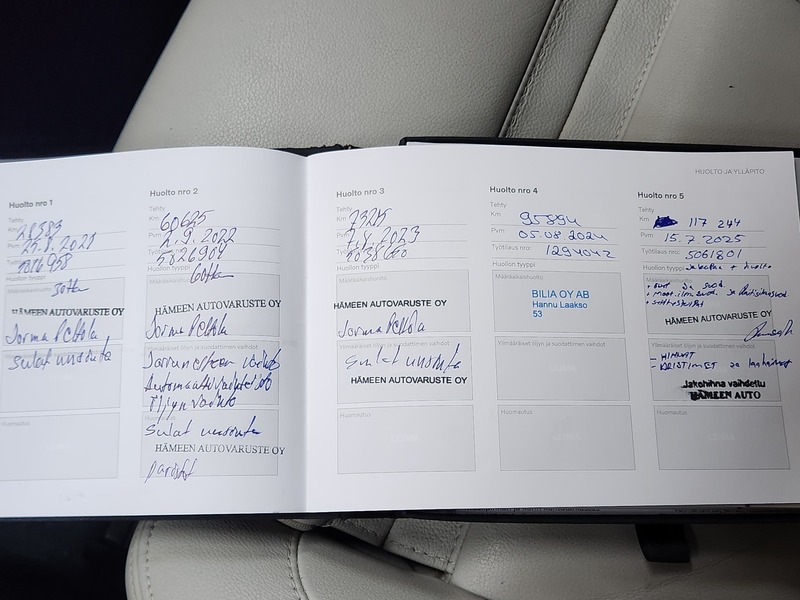 HUOLTO JA YLLÄPITO
Huolto nro 1
Tehty
Km 28583
Pvm
Työtilaus nro:
Huollon tyyppi
HÄMEEN AUTOVARUSTE OY
Jorma Peltola
Ylimääräiset öljyn ja suodattimen vaihdot
Sulat uusittu
Huomautus
Huolto nro 2
Tehty
Km 60625
Pvm 2.9.2022
Työtilaus nro: 5026904
Huollon tyyppi
Määräaikaishuolto
HÄMEEN AUTOVARUSTE OY
Jorma Peltola
Ylimääräiset öljyn ja suodattimen vaihdot
Jarrunesteen vaihto
Automaattivaihteisto
öljyn vaihto
Huomautus
Sulat uusittu
HÄMEEN AUTOVARUSTE OY
Huolto nro 3
Tehty
Km
Pvm
Työtilaus nro:
Huollon tyyppi
Määräaikaishuolto
HÄMEEN AUTOVARUSTE OY
Jorma Peltola
Ylimääräiset öljyn ja suodattimen vaihdot
Sulat uusittu
HÄMEEN AUTOVARUSTE OY
Huomautus
Huolto nro 4
Tehty
Km 95894
Pvm 05.08.2024
Työtilaus nro: 1294042
Huollon tyyppi
Määräaikaishuolto
BILIA OY AB
Hannu Laakso
53
Ylimääräiset öljyn ja suodattimen vaihdot
Huomautus
Huolto nro 5
Tehty
Km 117 244
Pvm 15.7.2025
Työtilaus nro: 5061801
Huollon tyyppi
HÄMEEN AUTOVARUSTE OY
Ylimääräiset öljyn ja suodattimen vaihdot
- HIHNAT
Jakohihna vaihdettu
HÄMEEN AUTO
Huomautus